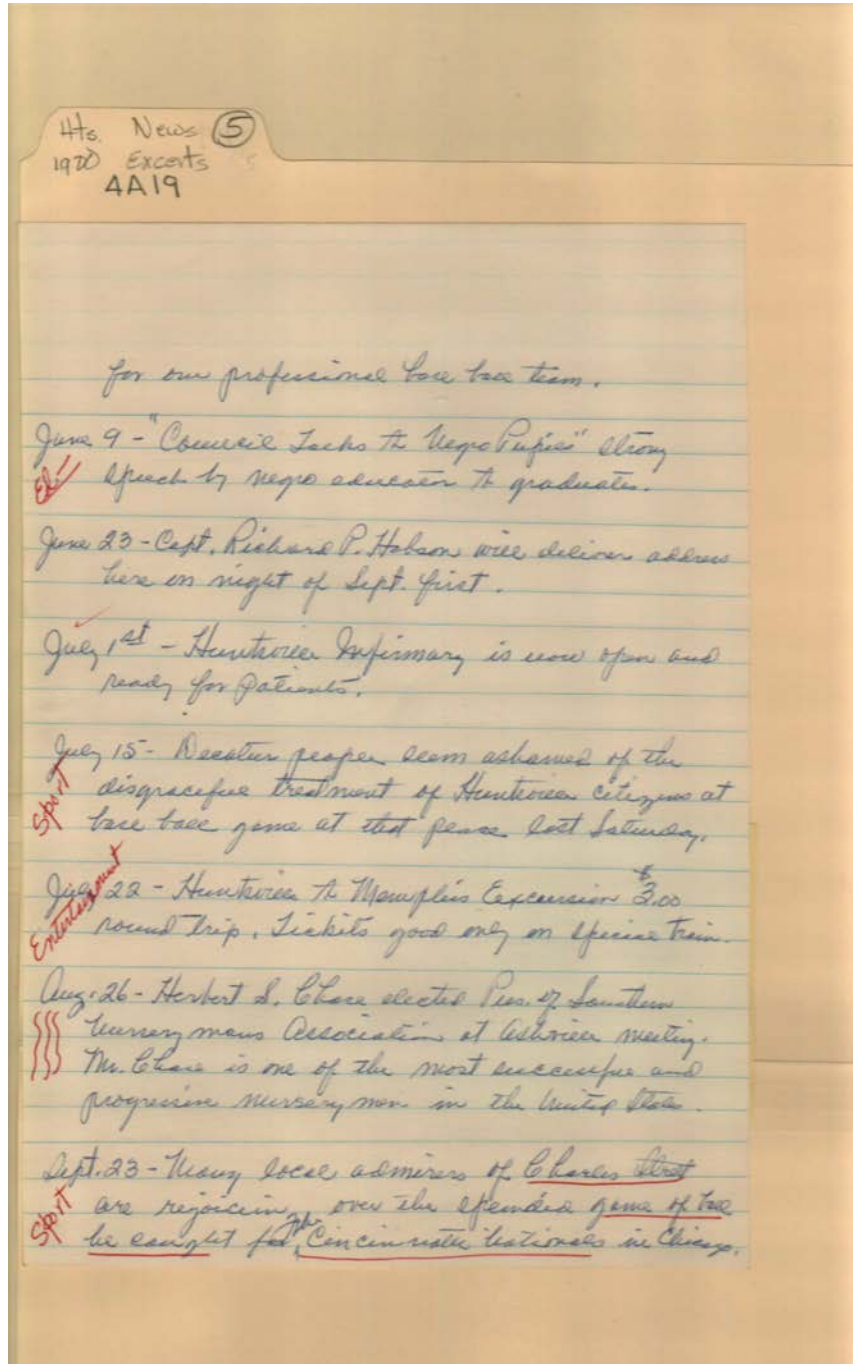 Hts. News 5
1920 Excerts 5
4A19
for our professional base ball team.
June 9 - "Council Talks to Negro Pupils" strong
Ed.
speech by negro educator to graduates.
June 23 - Capt. Richard P. Hobson will deliver address
here on night of Sept. first.
July 1st - Huntsville Infirmary is now open and
ready for patients.
July 15 - Decatur people seem ashamed of the
Sport
disgraceful treatment of Huntsville citizens at
base ball game at that place last Saturday.
July 22 - Huntsville to Memphis Excursion $3.00
Entertainment
round trip. Tickets good only on special train.
Aug. 26 - Herbert S. Chase elected Pres. of Southern
Nurserymans Association at Ashville meeting.
Mr. Chase is one of the most successful and
progressive nurserymen in the United States.
Sept. 23 - Many local admirers of Charles Street
Sport
are rejoicing over the splendid game of ball
he caught for the Cincinnatti Nationals in Chicago.